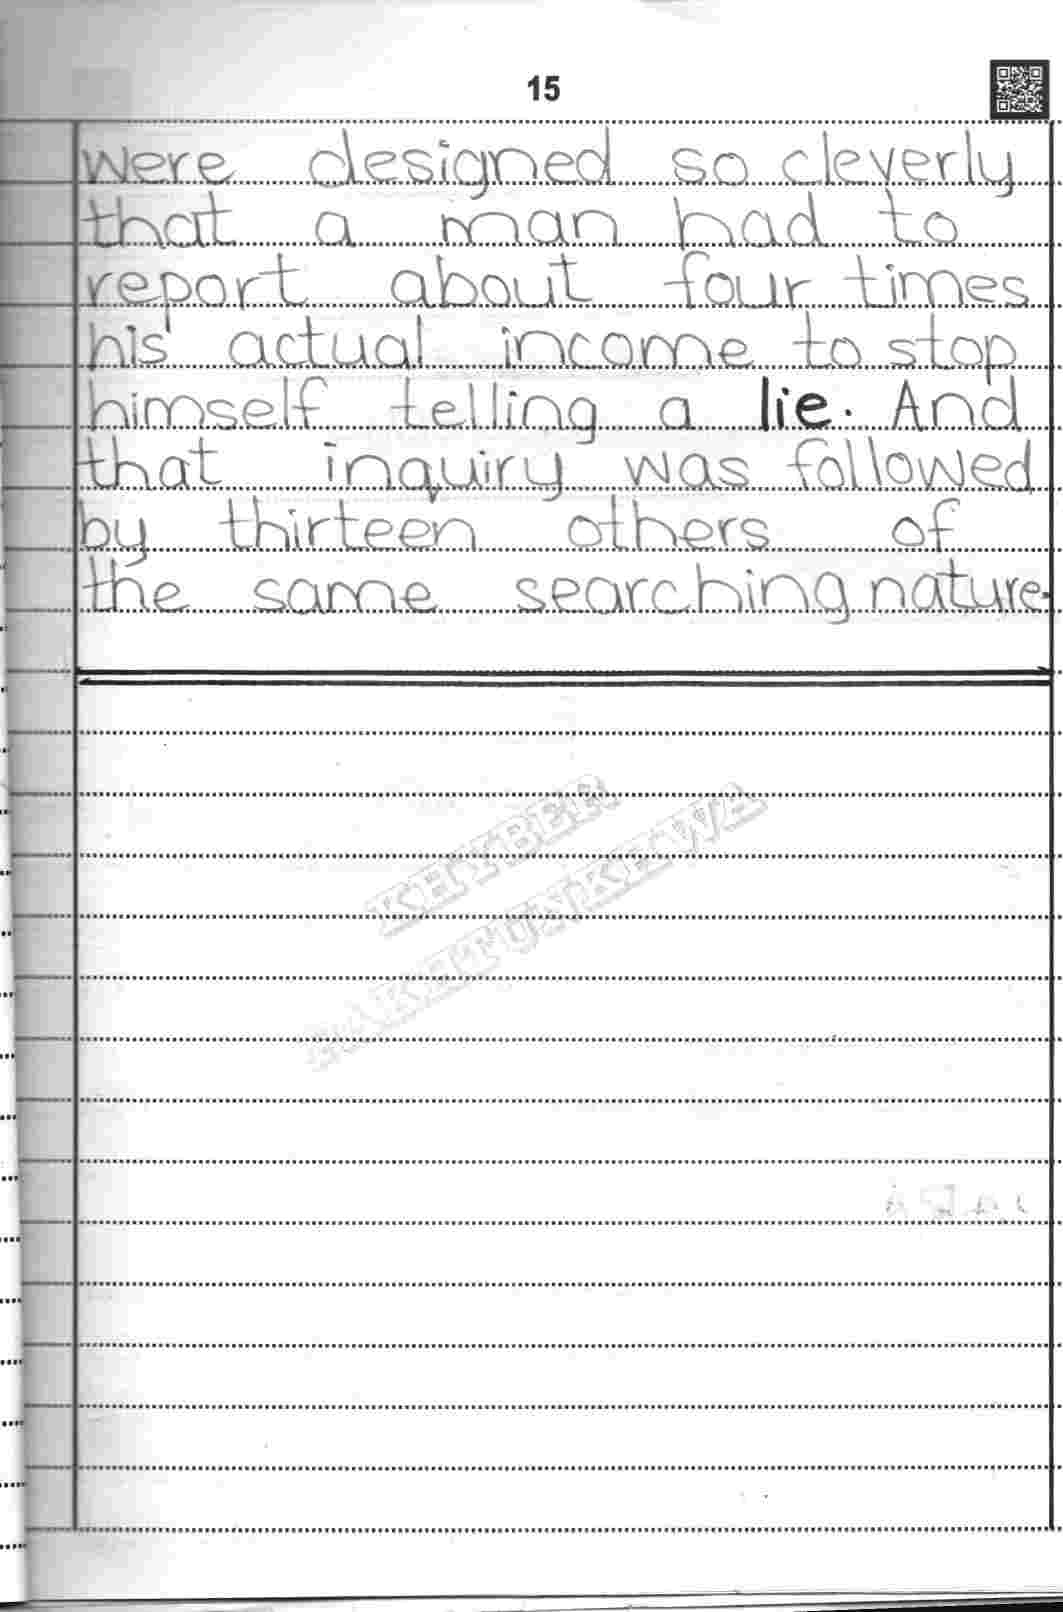 15
were designed so cleverly
that a man had to
report about four times
his actual income to stop
himself telling a lie. And
that inquiry was followed
by thirteen others of
the same searching nature.
KHYBER
PAKHTUNKHWA